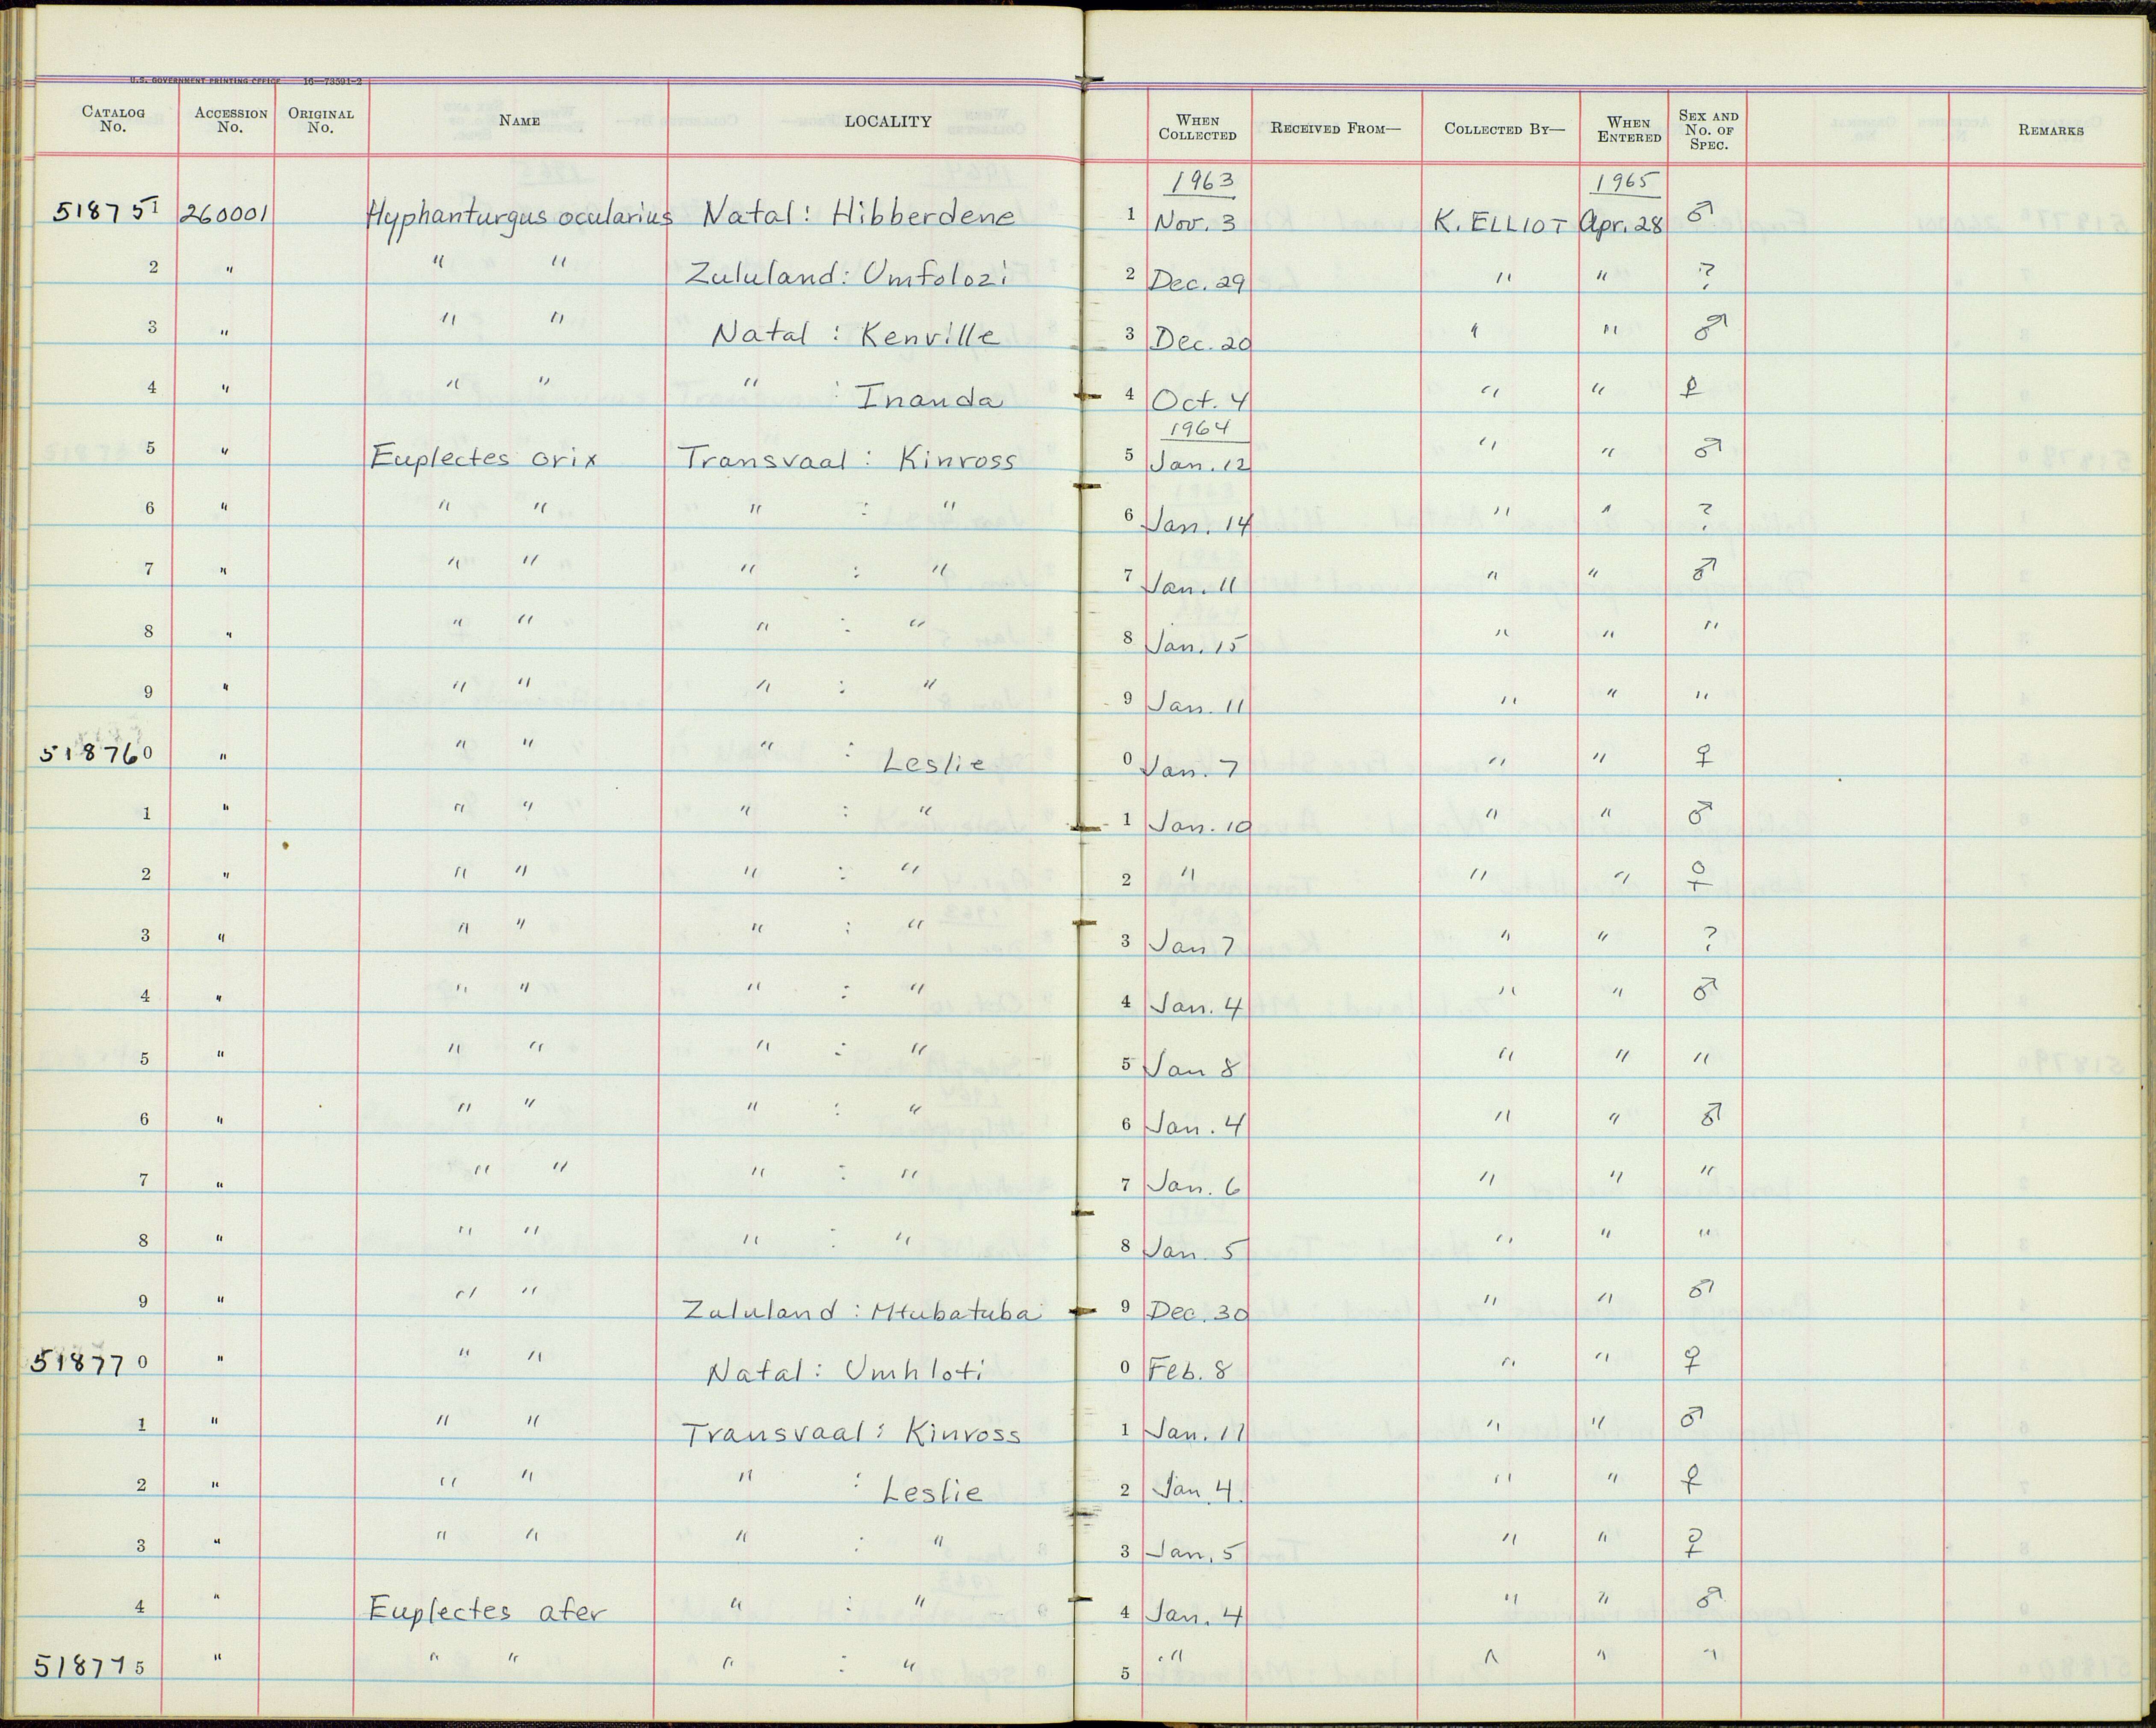 U.S. GOVERNMENT PRINTING OFFICE 16—73591-2
CATALOG No. ACCESSION No. ORIGINAL No. NAME LOCALITY WHEN COLLECTED RECEIVED FROM— COLLECTED BY— WHEN ENTERED SEX AND No. OF SPEC. REMARKS
1963 1965
518751 260001 Hyphanturgus ocularius Natal: Hibberdene 1 Nov. 3 K. ELLIOT Apr. 28 ♂
2 " " " Zululand: Umfolozi 2 Dec. 29 " " ?
3 " " " Natal : Kenville 3 Dec. 20 " " ♂
4 " " " " : Inanda 4 Oct. 4 " " ♀
1964
5 " Euplectes orix Transvaal : Kinross 5 Jan. 12 " " ♂
6 " " " " : " 6 Jan. 14 " " ?
7 " " " " : " 7 Jan. 11 " " ♂
8 " " " " : " 8 Jan. 15 " " "
9 " " " " : " 9 Jan. 11 " " "
518760 " " " " : Leslie 0 Jan. 7 " " ♀
1 " " " " : " 1 Jan. 10 " " ♂
2 " " " " : " 2 " " " ♀
3 " " " " : " 3 Jan 7 " " ?
4 " " " " : " 4 Jan. 4 " " ♂
5 " " " " : " 5 Jan 8 " " "
6 " " " " : " 6 Jan. 4 " " ♂
7 " " " " : " 7 Jan. 6 " " "
8 " " " " : " 8 Jan. 5 " " "
9 " " " Zululand : Mtubatuba 9 Dec. 30 " " ♂
518770 " " " Natal : Umhloti 0 Feb. 8 " " ♀
1 " " " Transvaal : Kinross 1 Jan. 11 " " ♂
2 " " " " : Leslie 2 Jan. 4. " " ♀
3 " " " " : " 3 Jan. 5 " " ♀
4 " Euplectes afer " : " 4 Jan. 4 " " ♂
518775 " " " " : " 5 " " " "